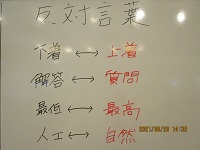 反対言葉
下着 ↔ 上着
解答 ↔ 質問
最低 ↔ 最高
人工 ↔ 自然